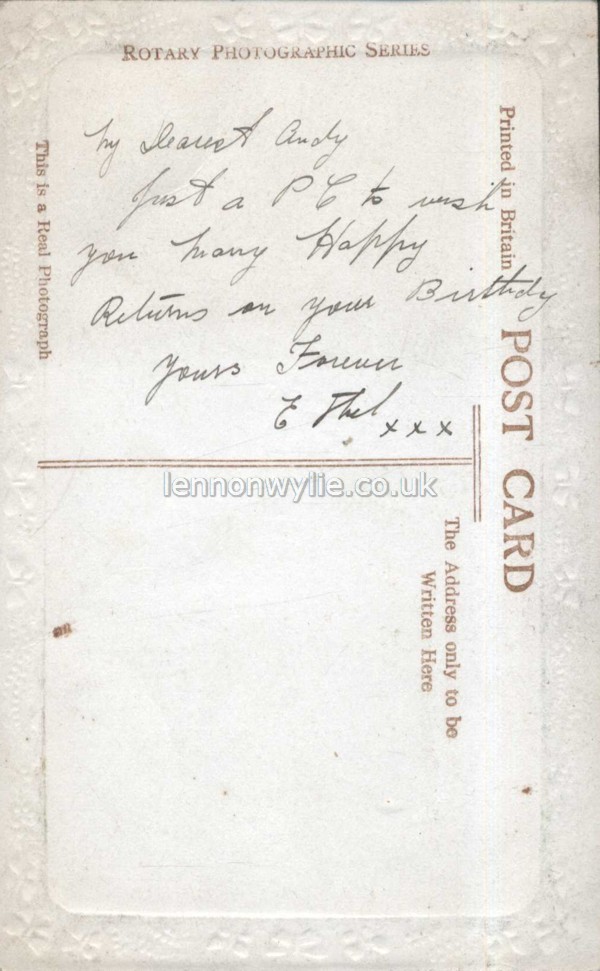 ROTARY PHOTOGRAPHIC SERIES
My Dearest Andy
Just a P C to wish
you many Happy
Returns on your Birthdy
yours Forever
E Thel xxx
This is a Real Photograph
Printed in Britain
POST CARD
The Address only to be
Written Here
lennonwylie.co.uk